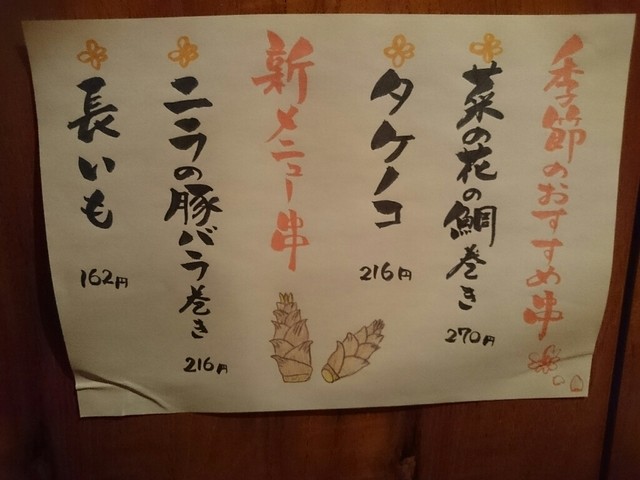 季節のおすすめ串
菜の花の鯛巻き
270円
タケノコ
216円
新メニュー串
ニラの豚バラ巻き
216円
長いも
162円